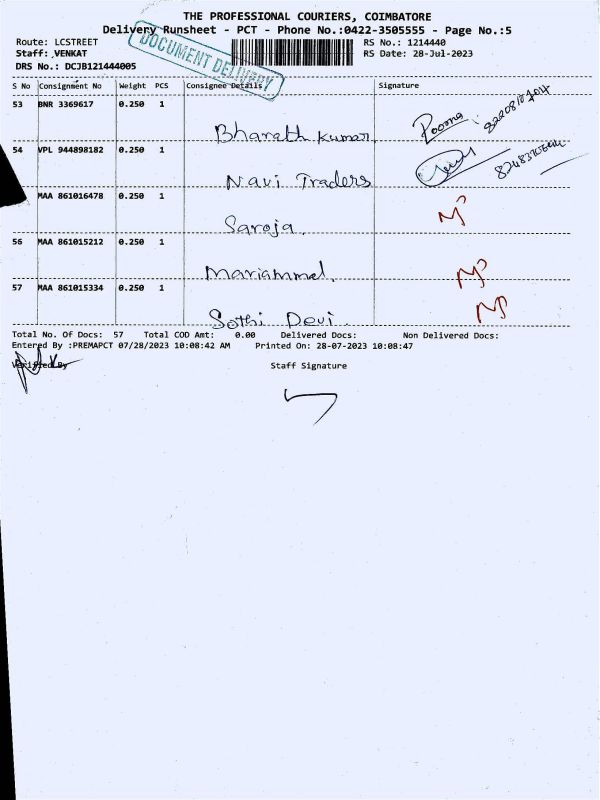 THE PROFESSIONAL COURIERS, COIMBATORE
Delivery Runsheet - PCT - Phone No.:0422-3505555 - Page No.:5
Route: LCSTREET RS No.: 1214440
Staff: VENKAT RS Date: 28-Jul-2023
DRS No.: DCJB121444005
DOCUMENT DELIVERY
S No Consignment No Weight PCS Consignee Details Signature
53 BNR 3369617 0.250 1
Bharath Kumar Poorna
54 VPL 944898182 0.250 1
Navi Traders
MAA 861016478 0.250 1
Saroja
56 MAA 861015212 0.250 1
Mariammal
57 MAA 861015334 0.250 1
Sothi Devi
Total No. Of Docs: 57 Total COD Amt: 0.00 Delivered Docs: Non Delivered Docs:
Entered By :PREMAPCT 07/28/2023 10:08:42 AM Printed On: 28-07-2023 10:08:47
Verified By Staff Signature